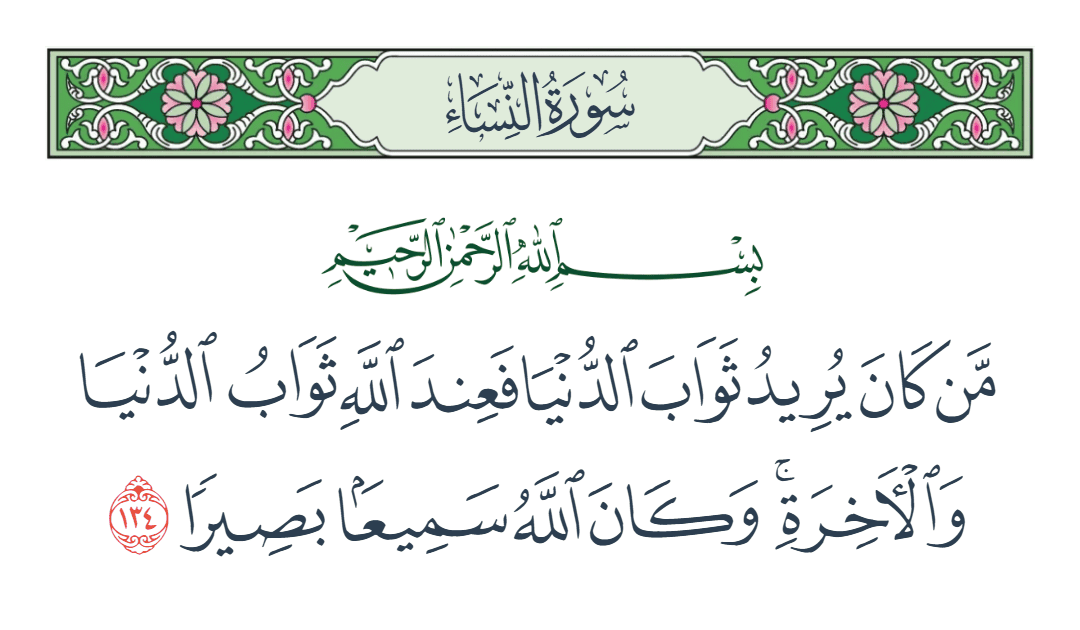 سُورَةُ النِّسَاءِ
بِسْمِ ٱللَّهِ ٱلرَّحْمَٰنِ ٱلرَّحِيمِ
مَّن كَانَ يُرِيدُ ثَوَابَ ٱلدُّنْيَا فَعِندَ ٱللَّهِ ثَوَابُ ٱلدُّنْيَا
وَٱلْأٓخِرَةِۚ وَكَانَ ٱللَّهُ سَمِيعَۢا بَصِيرٗا ١٣٤